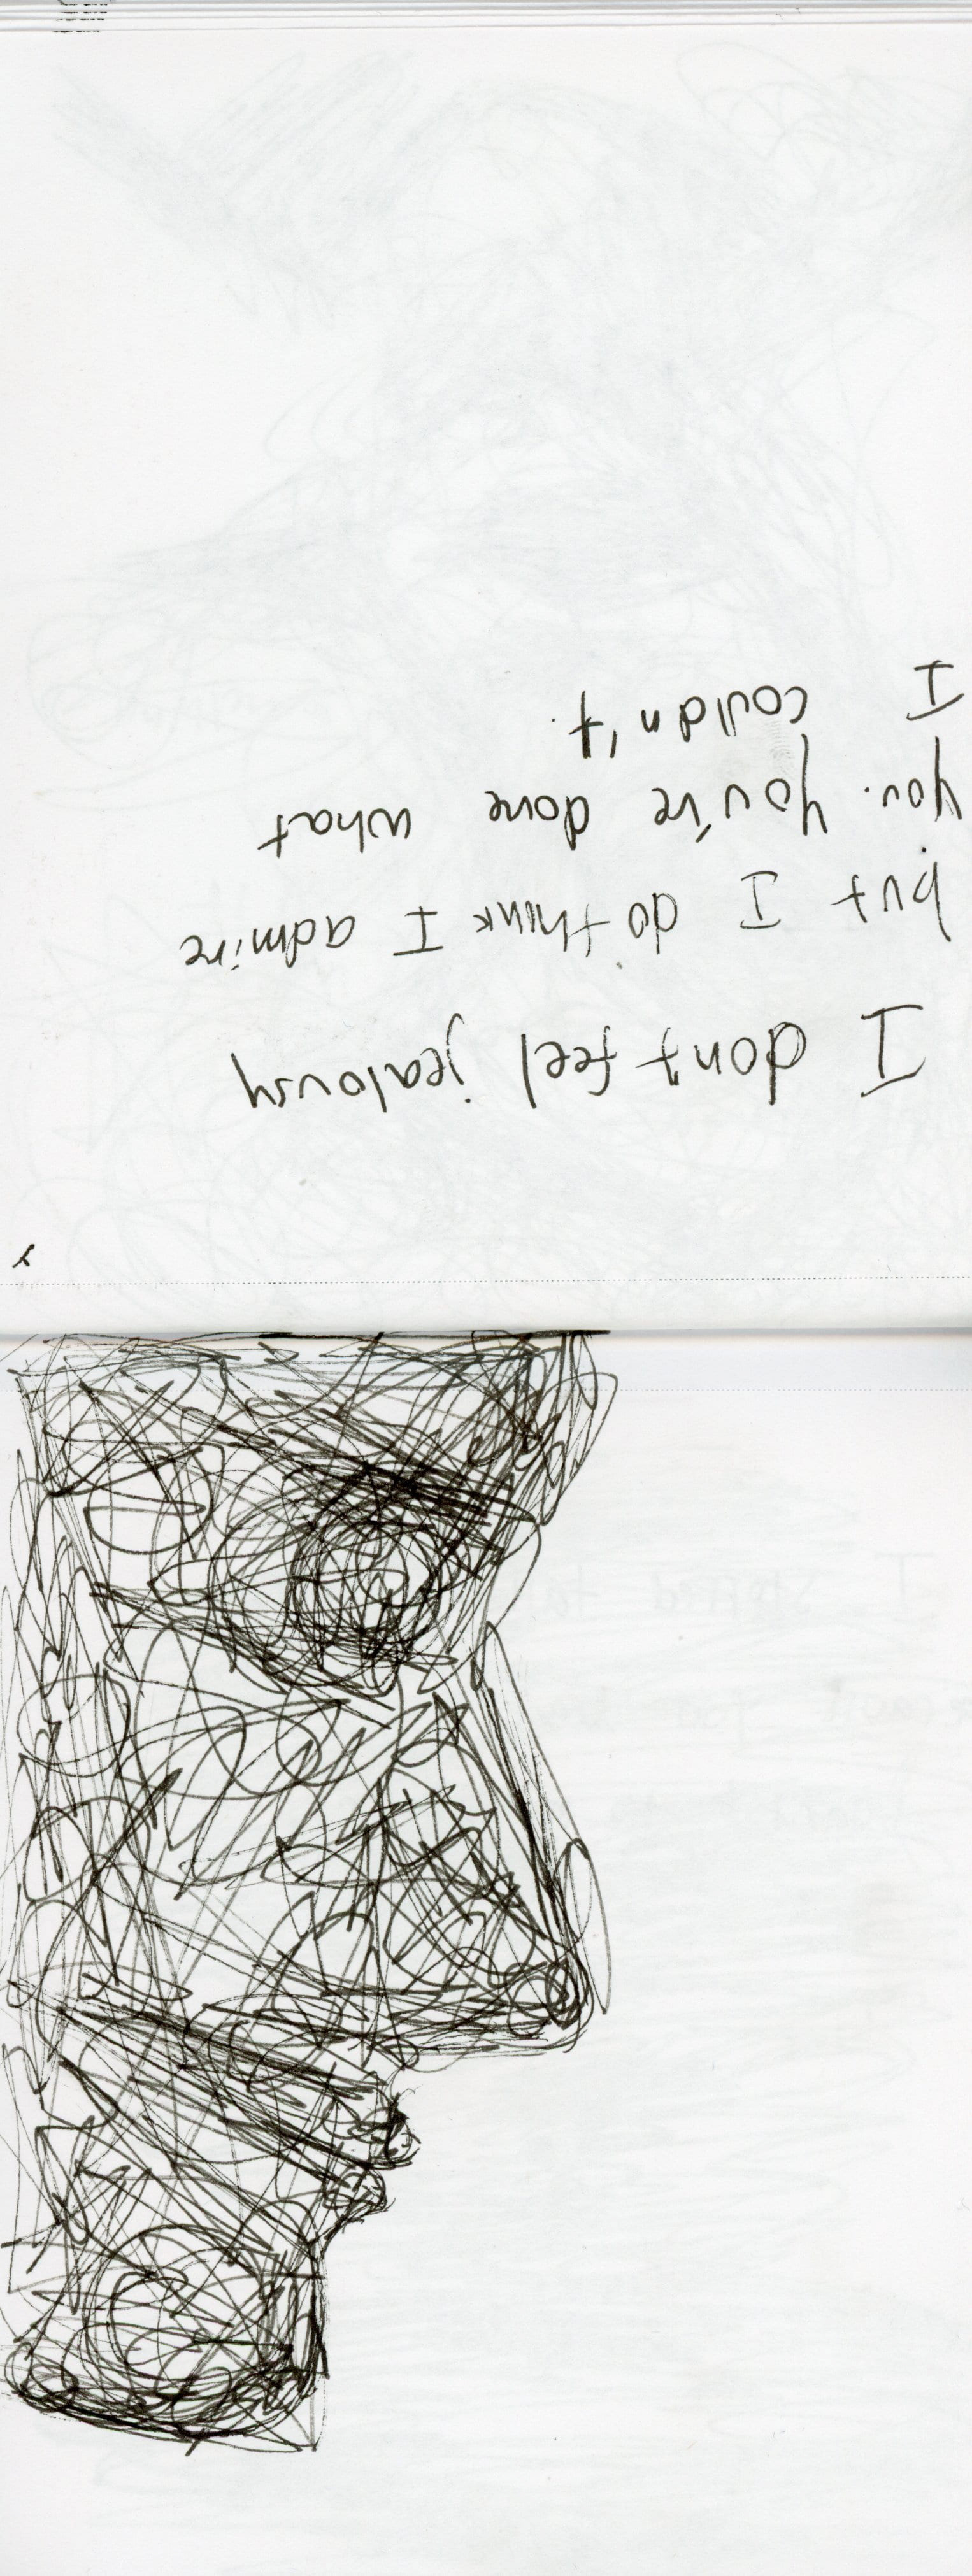 I don't feel jealousy
but I do think I admire
you. You've done what
I couldn't.